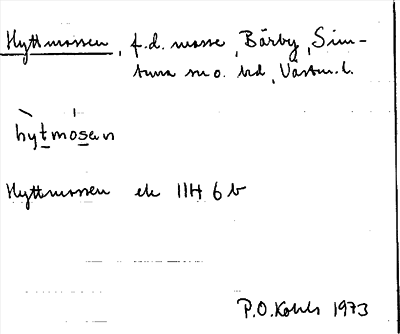 Hyttmossen, f.d. mosse, Bärby, Sim-
tuna sn o. hd, Västm. l.
hỳtmósan
Hyttmossen ek 11H 6b
P.O. Kohls 1973